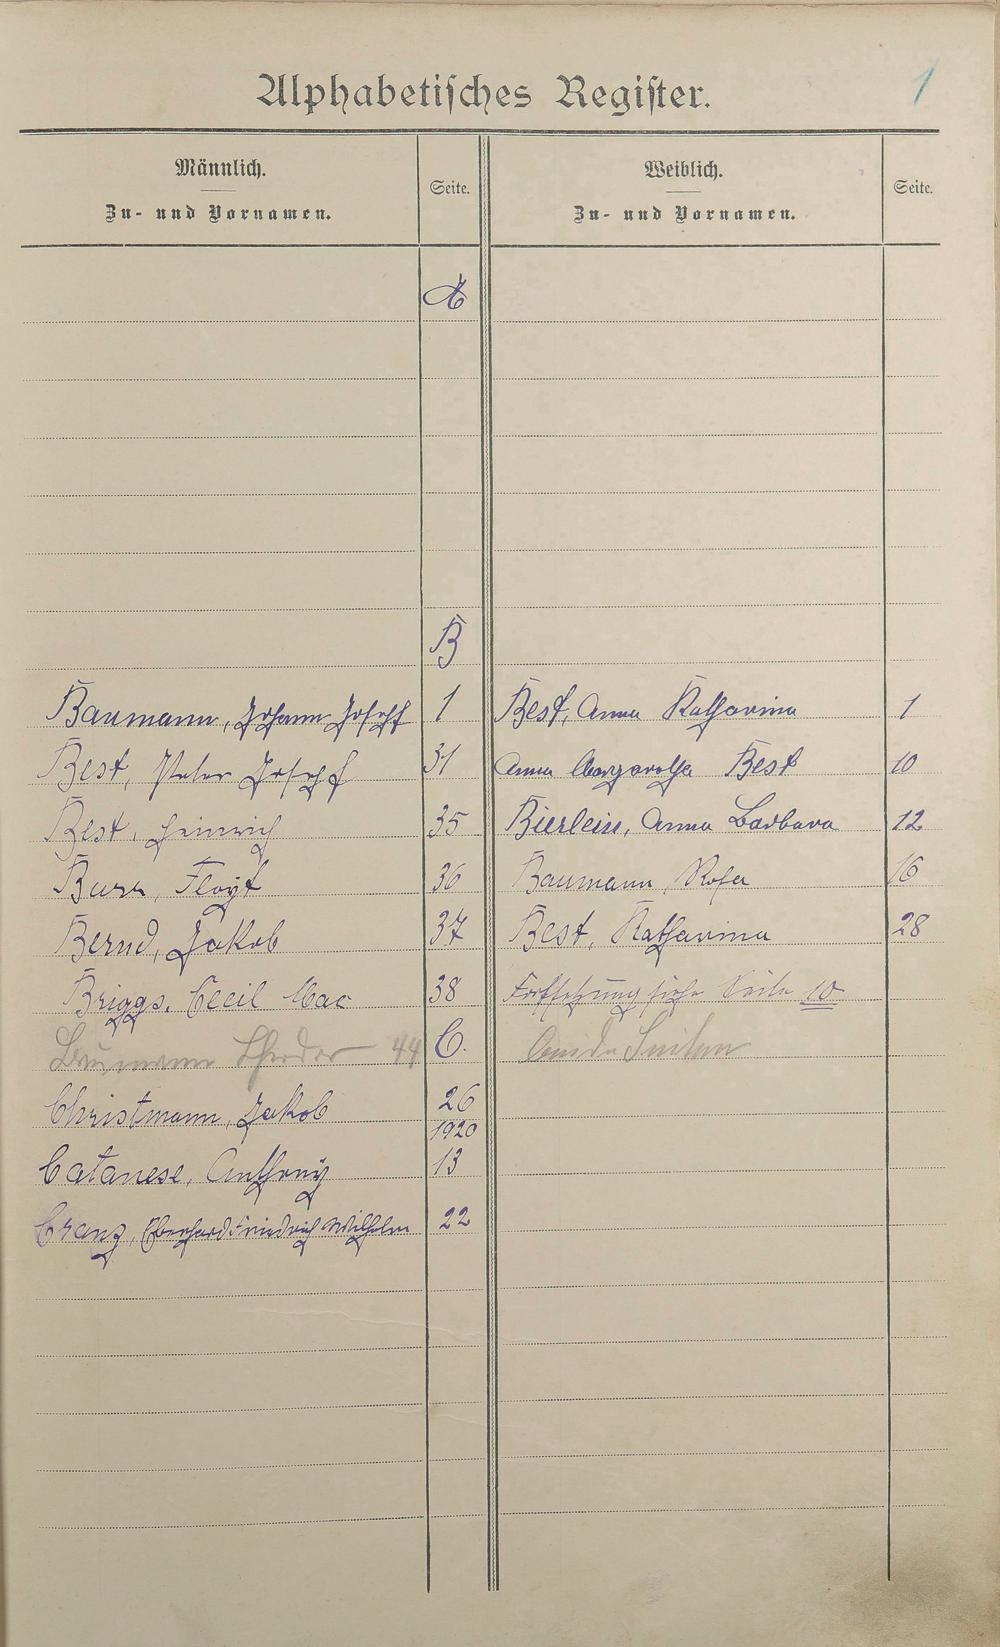 1
Alphabetisches Register.
Männlich. Seite. Weiblich. Seite.
Zu- und Vornamen. Zu- und Vornamen.
A
B
Baumann, Johann Joseph 1 Best, Anna Katharina 1
Best, Peter Joseph 31 Anna Margaretha Best 10
Best, Heinrich 35 Bierlein, Anna Barbara 12
Burr, Floyt 36 Baumann, Rosa 16
Bernd, Jakob 37 Best, Katharina 28
Briggs, Cecil Mac 38 Fortsetzung siehe Seite 10
Theodor 44 C.
Christmann, Jakob 26
1920
Catanese, Anthony 13
Cranz, Eberhard Friedrich Wilhelm 22